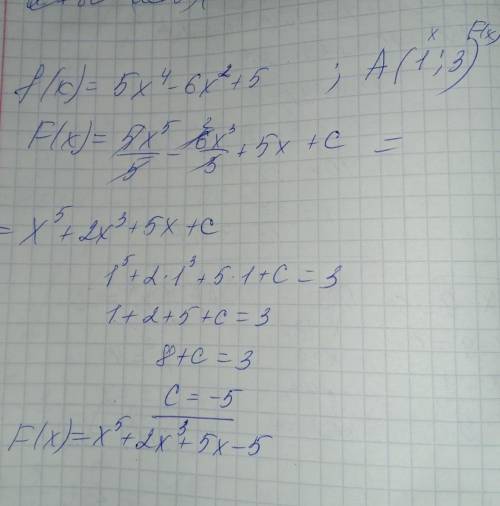 f(x) = 5x⁴ - 6x² + 5 ; A(1 ; 3)
x F(x)
F(x) = 5x⁵/5 - 6x³/3 + 5x + C =
2
= x⁵ + 2x³ + 5x + C
1⁵ + 2 · 1³ + 5 · 1 + C = 3
1 + 2 + 5 + C = 3
8 + C = 3
C = -5
F(x) = x⁵ + 2x³ + 5x - 5